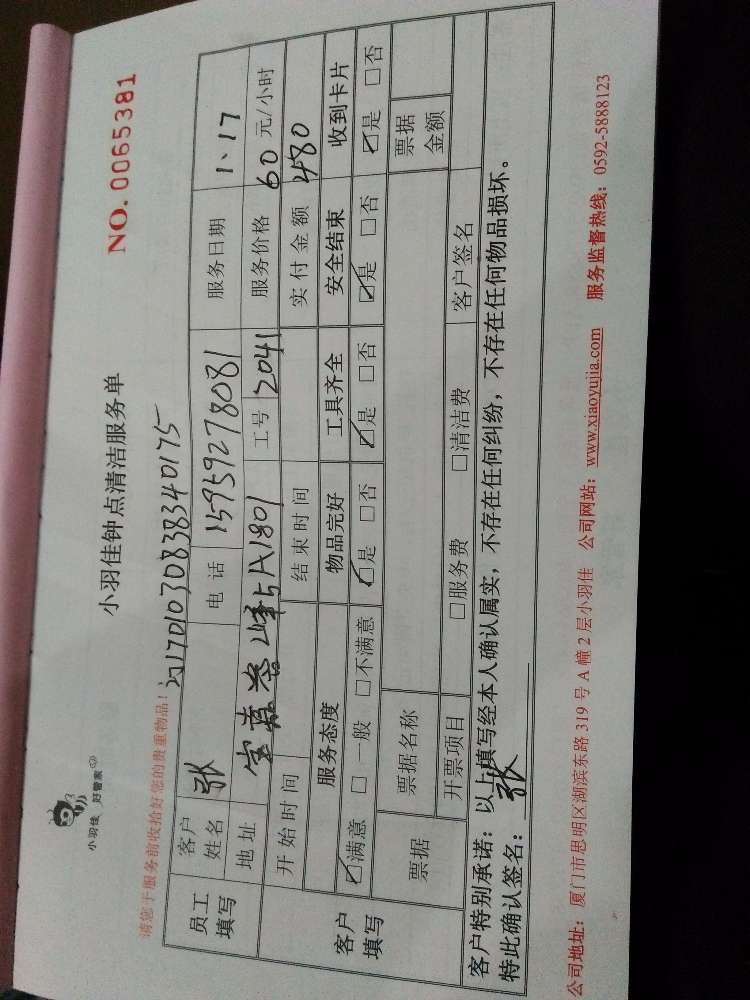 小羽佳 好管家
小羽佳钟点清洁服务单
NO. 0065381
请您于服务前收拾好您的贵重物品！
20170103083834 0175
员工填写 客户姓名 张 电话 15959278081 服务日期 1、17
地址 宝嘉誉峰5A1801 工号 2041 服务价格 60 元/小时
客户填写 开始时间 结束时间 实付金额 480
服务态度 物品完好 工具齐全 安全结束 收到卡片
☑满意 □一般 □不满意 ☑是 □否 ☑是 □否 ☑是 □否 ☑是 □否
票据 票据名称 票据金额
开票项目 □服务费 □清洁费 客户签名
客户特别承诺：以上填写经本人确认属实，不存在任何纠纷，不存在任何物品损坏。
特此确认签名：张
公司地址：厦门市思明区湖滨东路 319 号 A 幢 2 层小羽佳 公司网站：www.xiaoyujia.com 服务监督热线：0592-5888123